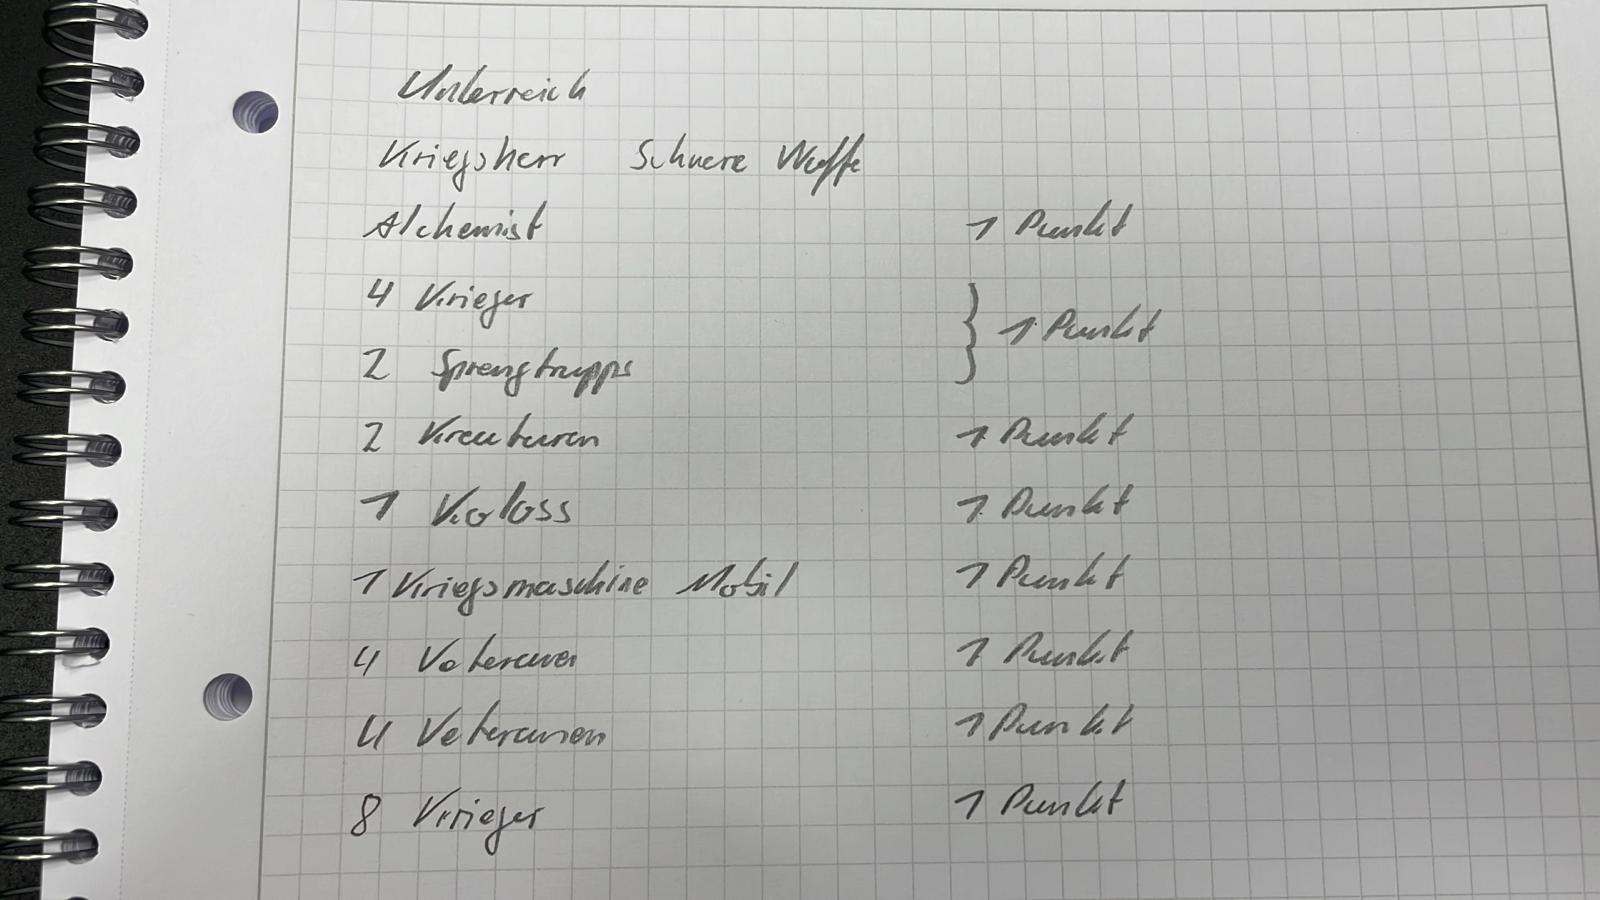 Unterreich
Kriegsherr Schwere Waffe
Alchemist 1 Punkt
4 Krieger
2 Sprengtrupps } 1 Punkt
2 Kreaturen 1 Punkt
1 Koloss 1 Punkt
1 Kriegsmaschine Mobil 1 Punkt
4 Veteranen 1 Punkt
4 Veteranen 1 Punkt
8 Krieger 1 Punkt